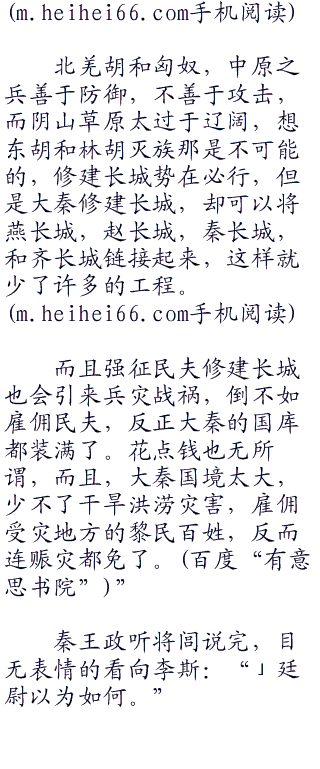 (m.heihei66.com手机阅读)
北羌胡和匈奴，中原之
兵善于防御，不善于攻击，
而阴山草原太过于辽阔，想
东胡和林胡灭族那是不可能
的，修建长城势在必行，但
是大秦修建长城，却可以将
燕长城，赵长城，秦长城，
和齐长城链接起来，这样就
少了许多的工程。
(m.heihei66.com手机阅读)
而且强征民夫修建长城
也会引来兵灾战祸，倒不如
雇佣民夫，反正大秦的国库
都装满了。花点钱也无所
谓，而且，大秦国境太大，
少不了干旱洪涝灾害，雇佣
受灾地方的黎民百姓，反而
连赈灾都免了。(百度“有意
思书院”)”
秦王政听将闾说完，目
无表情的看向李斯：“」廷
尉以为如何。”